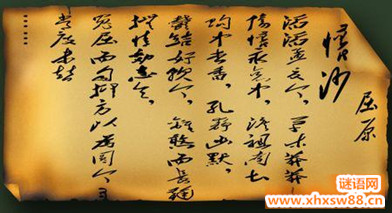 怀沙
屈原
滔滔孟夏兮,草木莽莽
伤怀永哀兮,汩徂南土
眴兮杳杳,孔静幽默
郁结纡轸兮,离愍而长鞠
抚情效志兮,
冤屈而自抑方以为圜兮
常度未替
谜语网
www.xhxsw88.cn